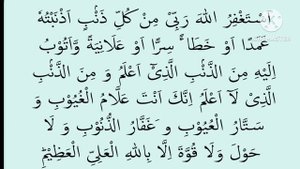 اَسْتَغْفِرُ اللهَ رَبِّىْ مِنْ كُلِّ ذَنْۢبٍ اَذْنَبْتُهٗ
عَمَدًا اَوْ خَطَاً سِرًّا اَوْ عَلَانِيَةً وَّاَتُوْبُ
اِلَيْهِ مِنَ الذَّنْۢبِ الَّذِىْٓ اَعْلَمُ وَ مِنَ الذَّنْۢبِ
الَّذِىْ لَآ اَعْلَمُ اِنَّكَ اَنْتَ عَلَّامُ الْغُيُوْبِ وَ
سَتَّارُ الْعُيُوْبِ وَ غَفَّارُ الذُّنُوْبِ وَ لَا
حَوْلَ وَلَا قُوَّةَ اِلَّا بِاللهِ الْعَلِىِّ الْعَظِيْمِؕ